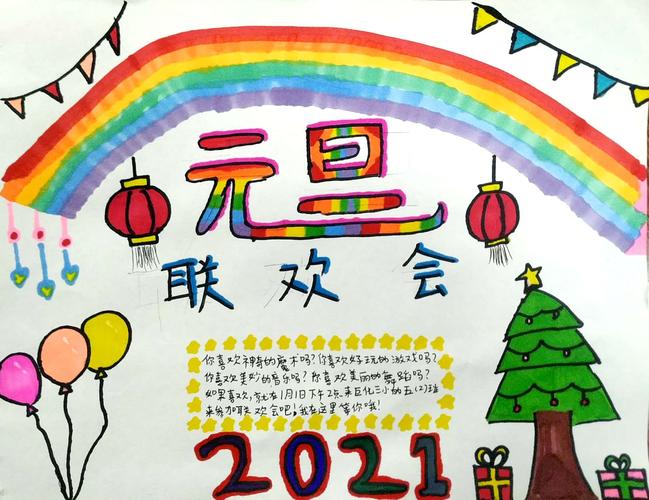 元旦
联欢会
你喜欢神奇的魔术吗?你喜欢好玩的游戏吗?
你喜欢美妙的音乐吗?你喜欢美丽的舞蹈吗?
如果喜欢,就在1月1日下午2点来巨化三小的五(2)班
来参加联欢会吧!我在这里等你哦!
2021